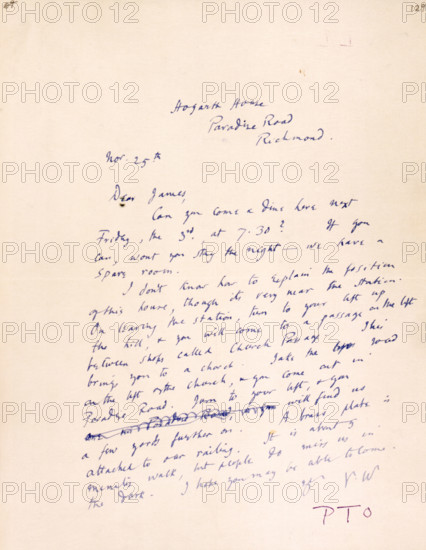 128
Hogarth House
Paradise Road
Richmond.
Nov. 25th
Dear James,
Can you come & dine here next
Friday, the 3rd. at 7.30? If you
can, wont you stay the night - we have a
spare room.
I don't know how to explain the position
of this house, though its very near the station.
On leaving the station, turn to your left up
the hill, & you will come to a passage on the left
between shops called Church Passage. This
brings you to a church. Take the road
on the left of the church, & you come out in
Paradise Road. Turn to your left, & you
will find us
a few yards further on. A brass plate is
attached to our railing. It is about 5
minutes walk, but people do miss us in
the dark. I hope you may be able to come.
V W
PTO
PHOTO 12